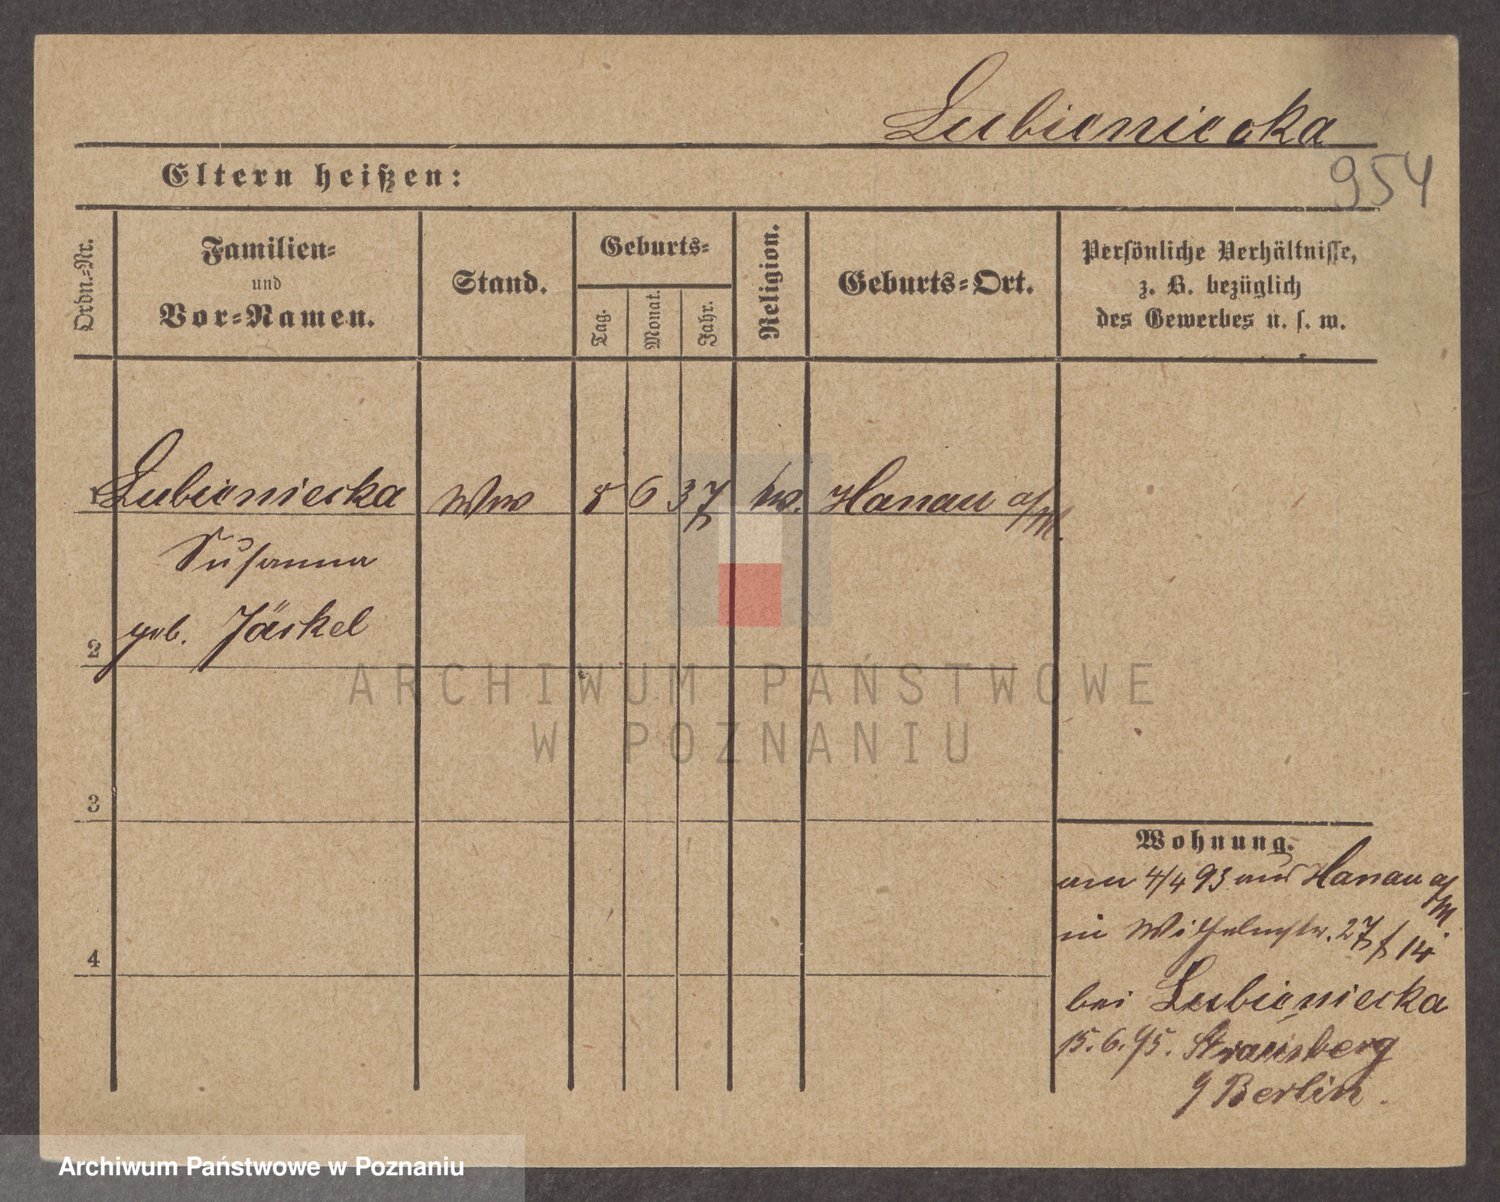 Lubieniecka
954
Eltern heißen:
Ordn.=Nr.
Familien=
und
Vor=Namen.
Stand.
Geburts=
Tag.
Monat.
Jahr.
Religion.
Geburts=Ort.
Persönliche Verhältnisse,
z. B. bezüglich
des Gewerbes u. s. w.
1 Lubieniecka Ww 8 6 37 ev. Hanau a/M.
Susanna
geb. Jäckel
2
3
4
Wohnung.
am 4/4 93 aus Hanau a/M.
in Wilhelmstr. 27
bei Lubieniecka
15.6.95. Strausberg
Berlin.
ARCHIWUM PAŃSTWOWE
W POZNANIU
Archiwum Państwowe w Poznaniu